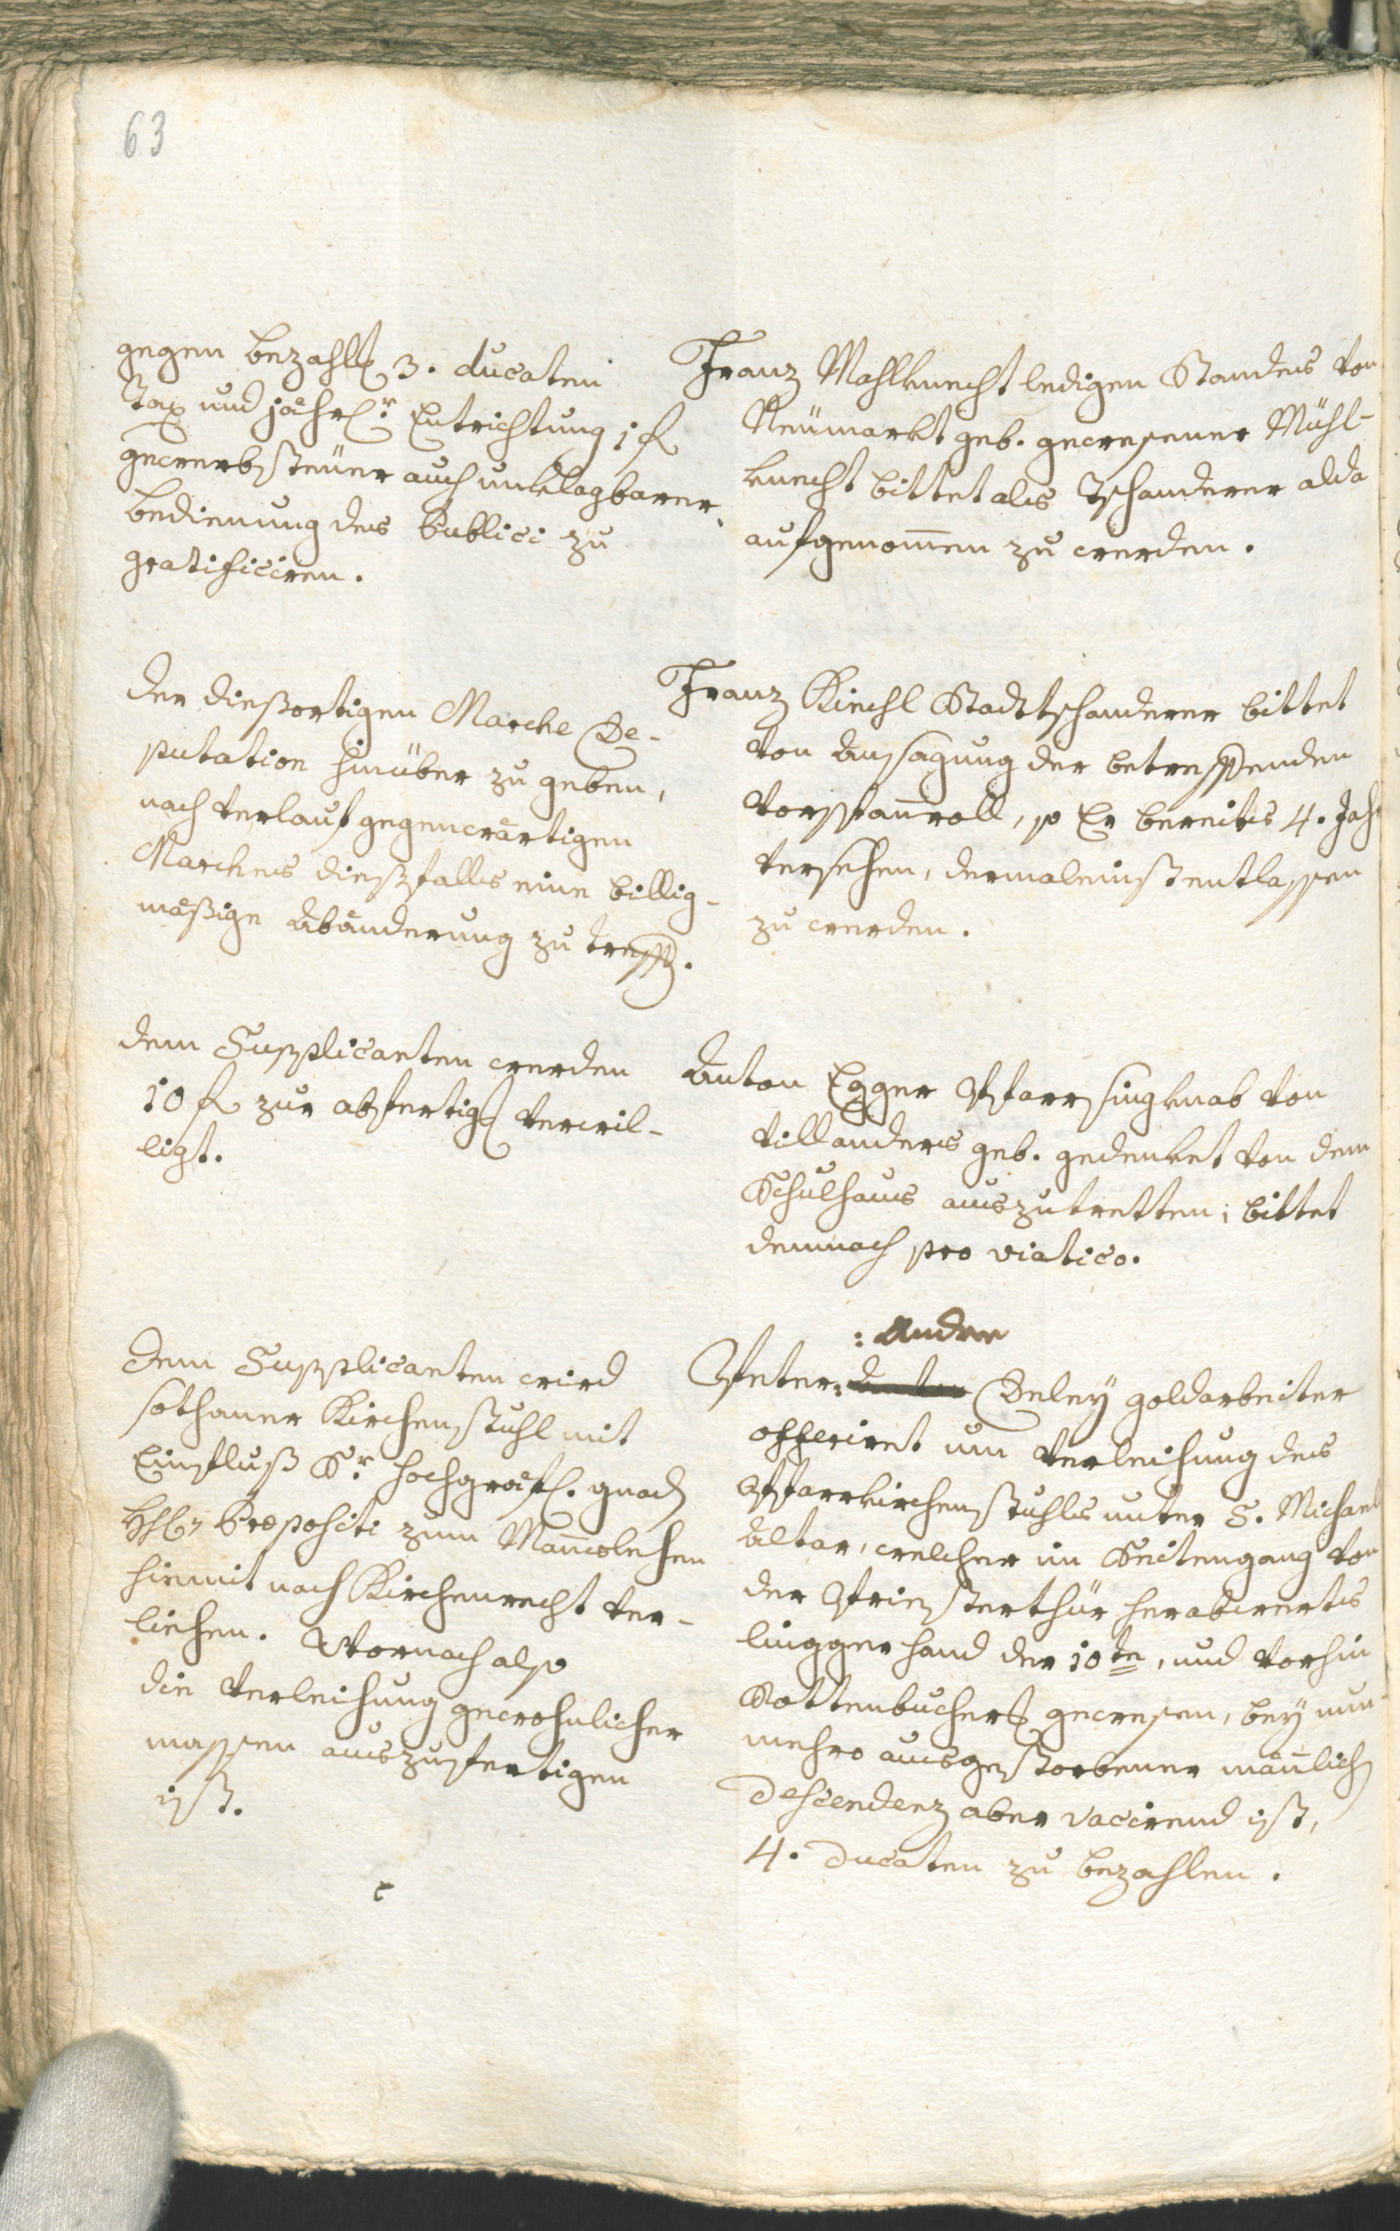 63
gegen bezahlg 3. ducaten
Tax und jährlr Entrichtung 1 f
gewerbsteüer auch unklagbarer
bedienung des Publici zu
gratificiren.
Franz Mahlknecht ledigen Standes von
Neümarkt geb. gewesener Mühl-
knecht bittet als Tschanderer alda
aufgenomen zu werden.
der dießortigen Marche De-
putation hinüber zu geben,
nach verlauf gegenwärtigen
Marches dießfalls eine billig-
mäßige Abänderung zu treffen.
Franz Kiechl Stadttschanderer bittet
von Ansagung der betreffenden
Vorspanroll, so Er bereits 4. Jahr
versehen, dermaleinst entlassen
zu werden.
dem Supplicanten werden
10 f zur abfertigg verwil-
ligt.
Anton Egger Pfarrsingknab von
Villanders geb. gedenket von dem
Schulhaus auszutretten; bittet
demnach pro viatico.
dem Supplicanten wird
sothaner Kirchenstuhl mit
Einfluß Sr hochgräfl. gnad
Propositi zum Manslehen
hiemit nach Kirchenrecht ver-
liehen. Wornach also
die Verleihung gewohnlicher
massen auszufertigen
ist.
: Andre
Peter: Deleÿ goldarbeiter
offeriret um Verleihung des
Pfarrkirchenstuhls unter S. Michael
Altar, welcher im Seitengang von
der Priesterthür herabwerts
lingger hand der 10te, und vorhin
Rottenbucherg gewesen, beÿ nun-
mehro ausgestorbener mänlich
Descendenz aber vacirend ist,
4. Ducaten zu bezahlen.